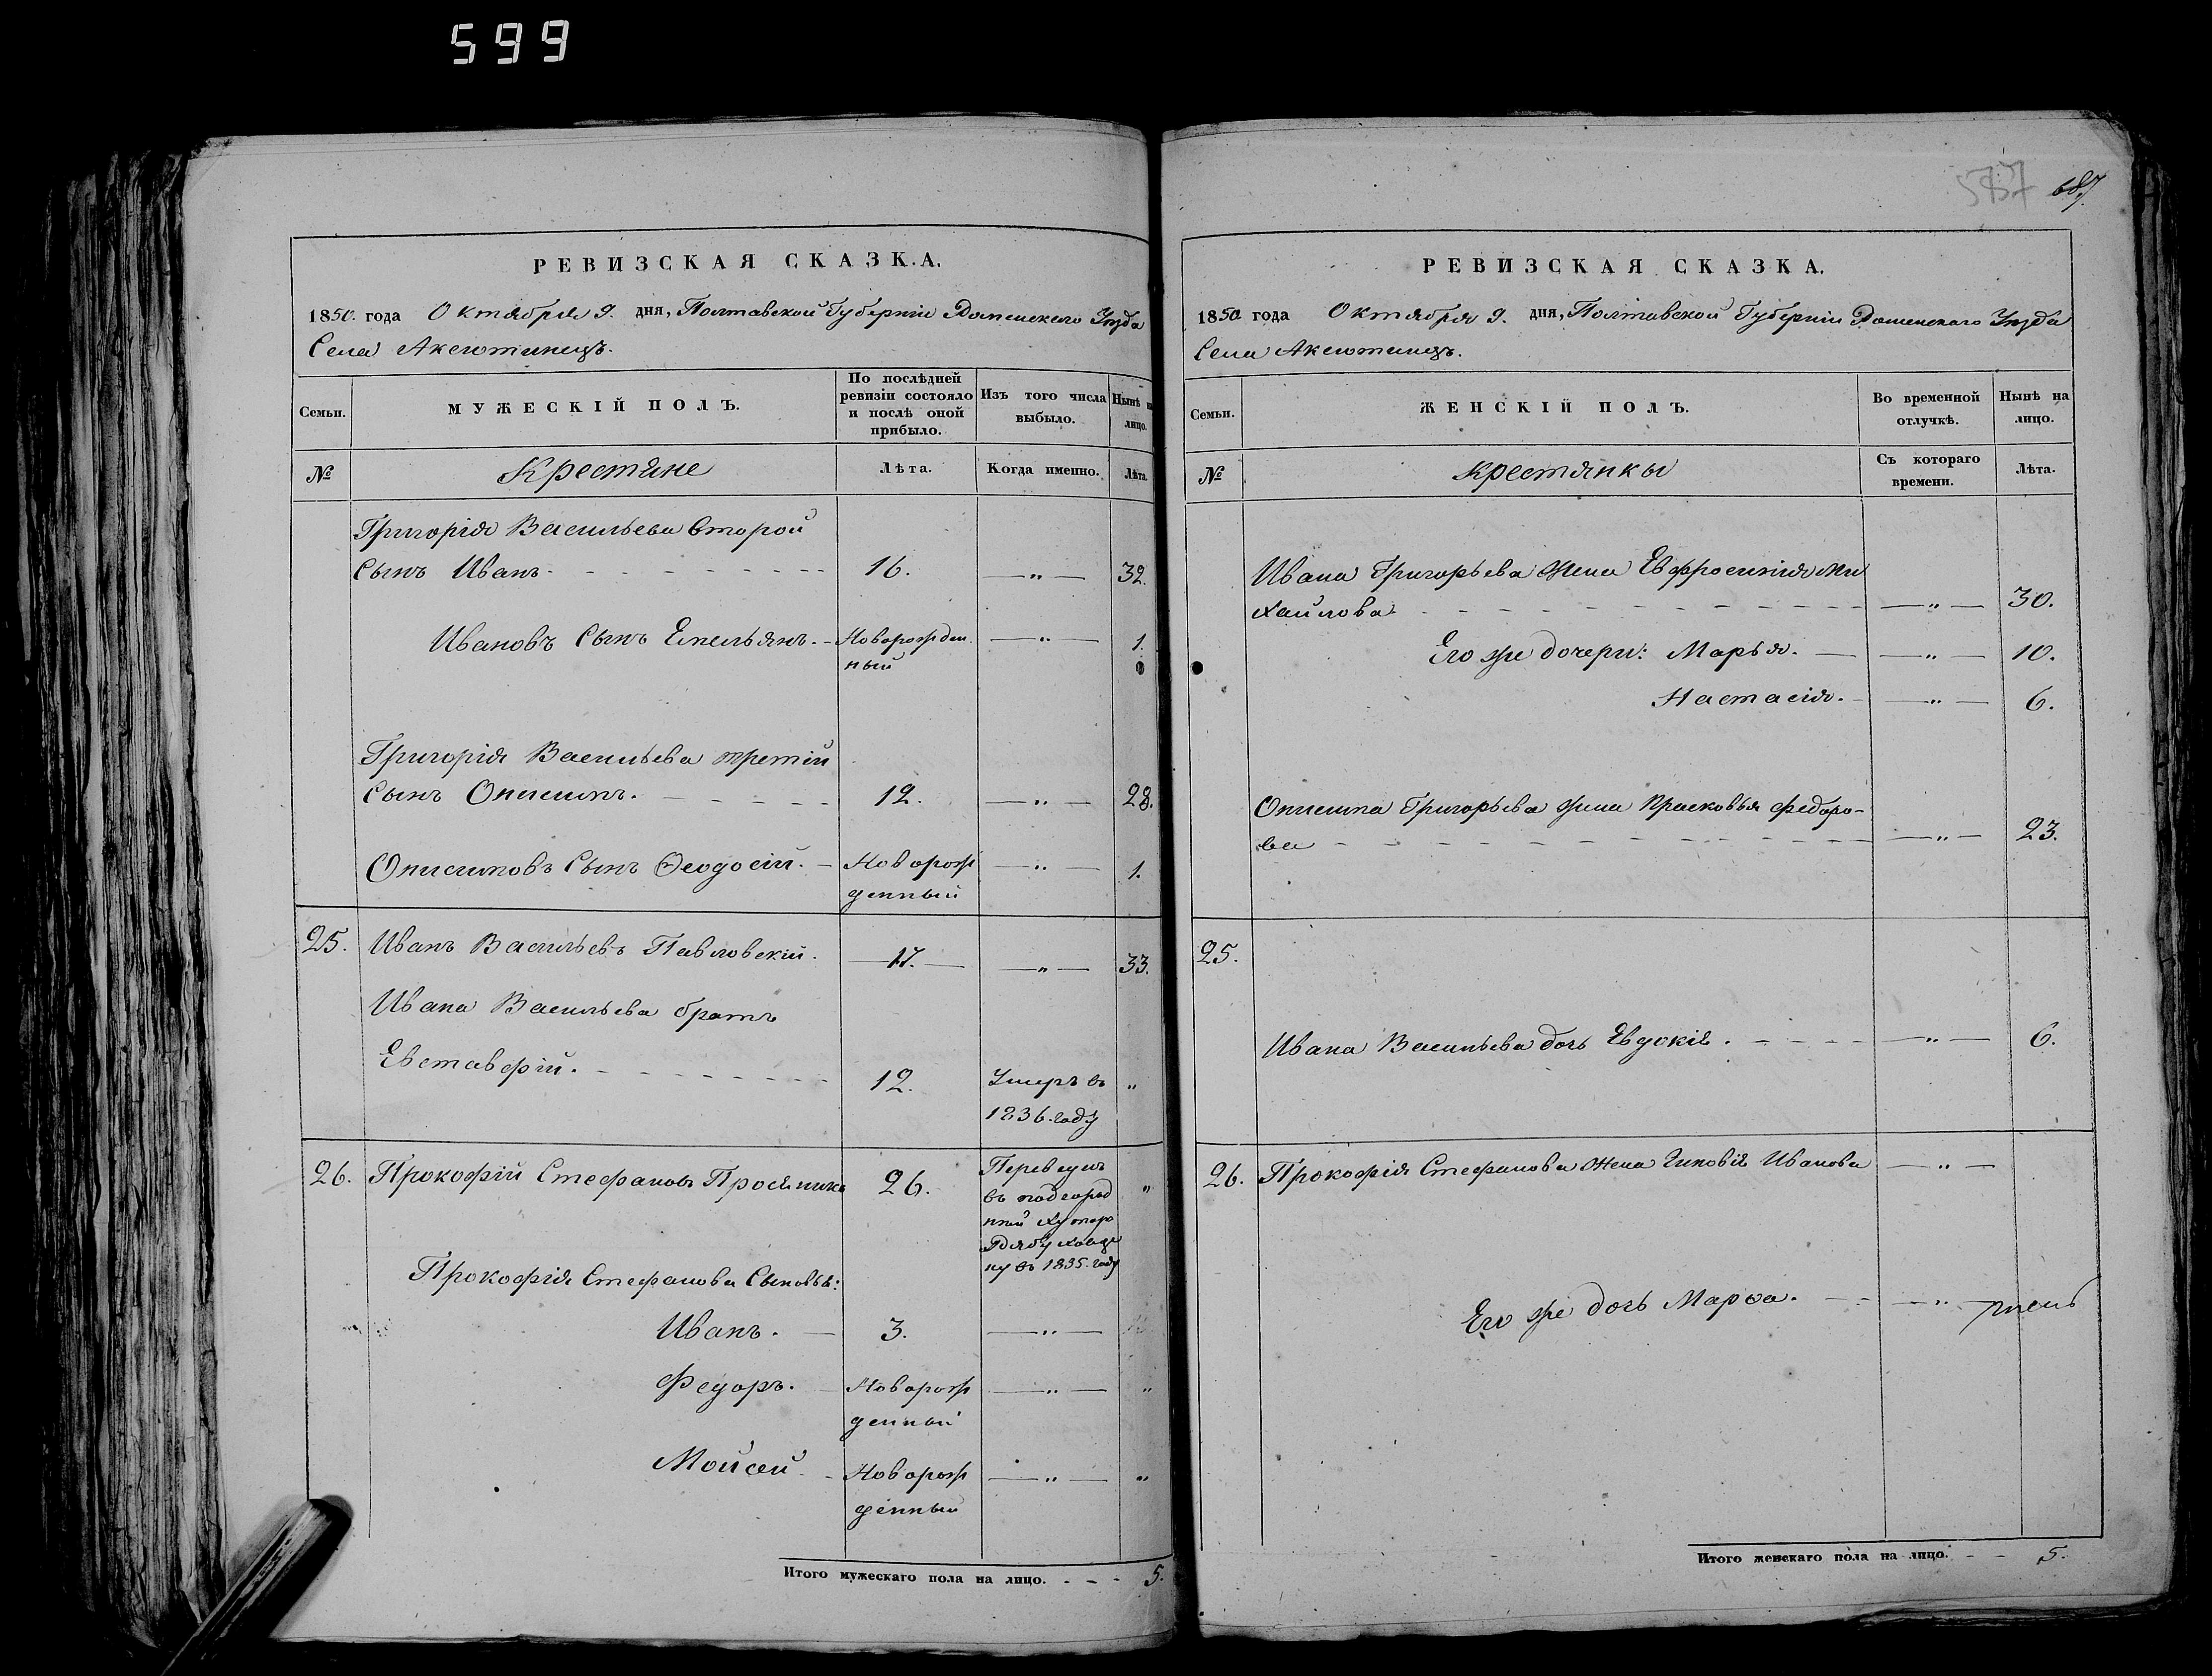 599
РЕВИЗСКАЯ СКАЗКА.
1850. года Октября 9. дня, Полтавской Губерніи Роменскаго Уезда
Села Аксютинецъ.
Семьи.
МУЖЕСКІЙ ПОЛЪ.
По послѣдней
ревизіи состояло
и послѣ оной
прибыло.
Изъ того числа
выбыло.
Нынѣ на
лицо.
№
Крестяне
Лѣта.
Когда именно.
Лѣта.
Григорія Васильева второй
Сынъ Иванъ. 16. „ 32.
Ивановъ Сынъ Емельянъ. Новорожден
ный „ 1.
Григорія Васильева третій
Сынъ Онисимъ. 12. „ 28.
Онисимовъ Сынъ Ѳеодосій. Новорож
денный „ 1.
25. Иванъ Васильевъ Павловскій. 17. „ 33.
Ивана Васильева братъ
Евставфій. 12. Умеръ въ „
1836. году
26. Прокофій Стефановъ 26. Переведенъ „
въ подгород
ный Хуторъ
въ 1835. году
Прокофія Стефанова Сыновья:
Иванъ. 3. „
Федоръ. Новорож „ „
денный
Мойсей. Новорож „ „
денный
Итого мужескаго пола на лицо. 5.
5737 687
РЕВИЗСКАЯ СКАЗКА.
1850 года Октября 9. дня, Полтавской Губерніи Роменскаго Уезда
Села Аксютинецъ.
Семьи.
ЖЕНСКІЙ ПОЛЪ.
Во временной
отлучкѣ.
Нынѣ на
лицо.
№
Крестянкы
Съ котораго
времени.
Лѣта.
Ивана Григорьева жена Евфросинія Ми
хайлова „ 30.
Его же дочери: Марья. „ 10.
Настасія. „ 6.
Онисима Григорьева жена Прасковья Федоро-
ва „ 23.
25.
Ивана Васильева дочь Евдокія. „ 6.
26. Прокофія Стефанова жена Зиновія Иванова „
Его же дочь Марѳа. „
Итого женскаго пола на лицо. 5.